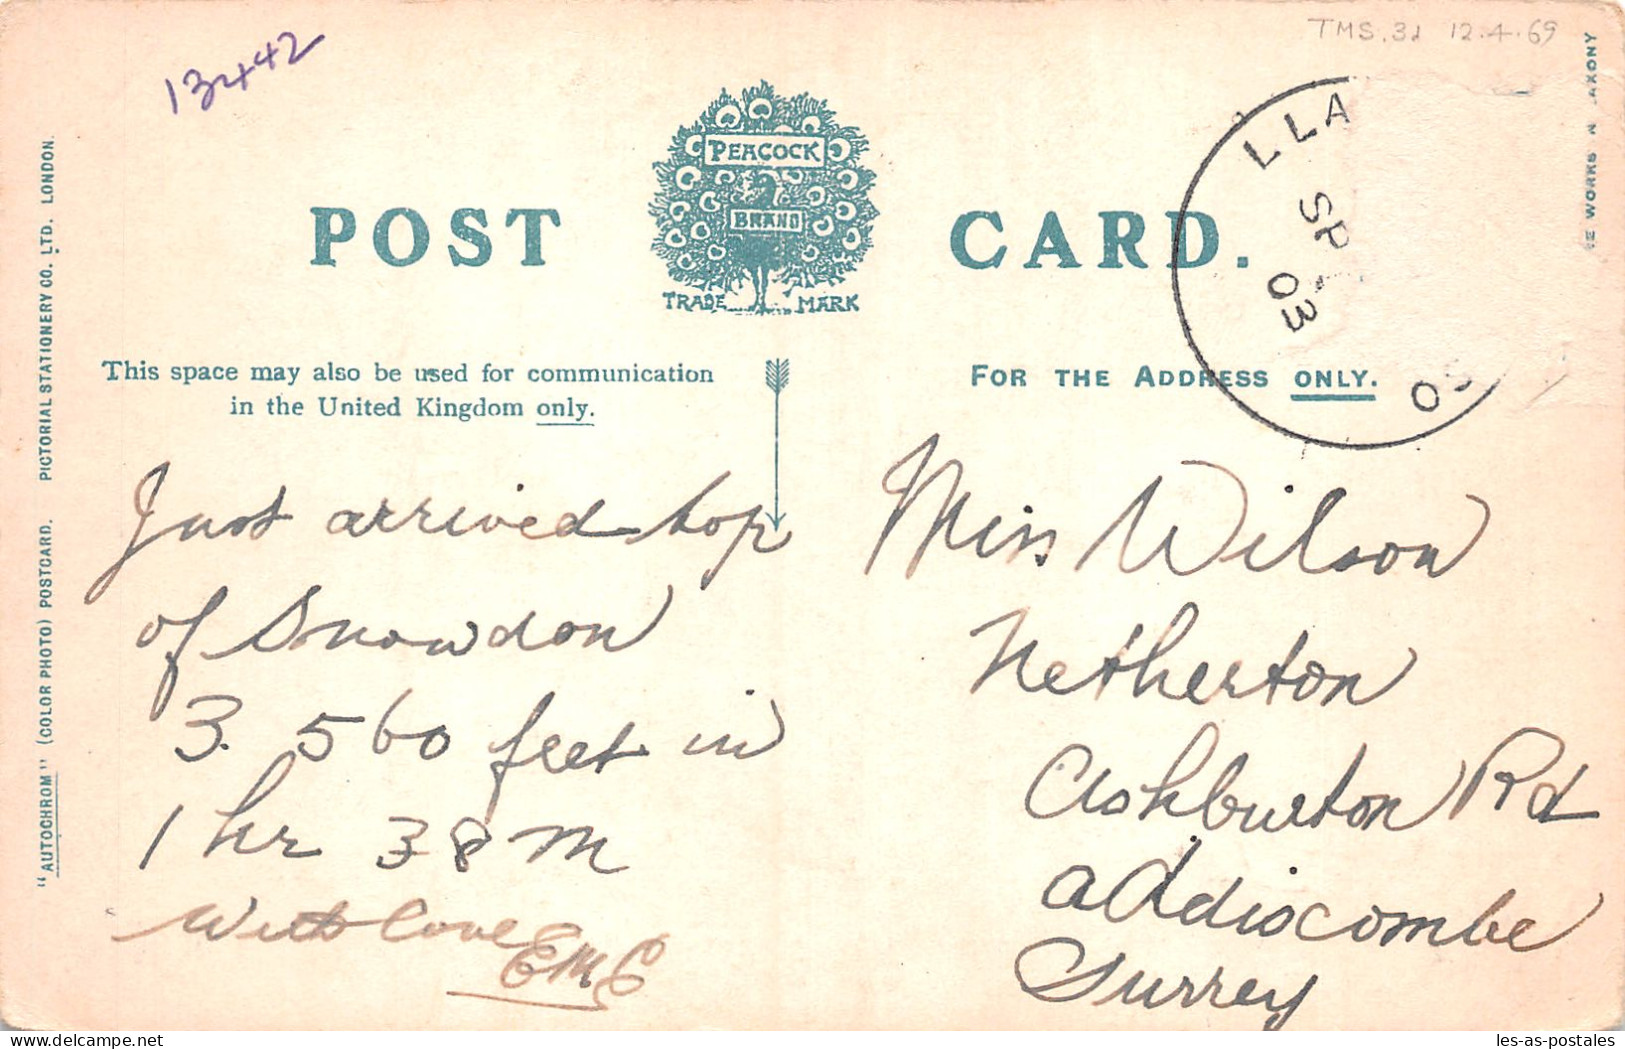 13442
TMS. 3d 12.4.69
PEACOCK
BRAND
TRADE MARK
POST CARD.
LLA
SP
03
SO
This space may also be used for communication
in the United Kingdom only.
FOR THE ADDRESS ONLY.
Just arrived top
of Snowdon
3.560 feet in
1 hr 38 m
With love
EMC
Miss Wilson
Netherton
Ashburton Rd
Addiscombe
Surrey
"AUTOCHROM" (COLOR PHOTO) POSTCARD. PICTORIAL STATIONERY CO. LTD. LONDON.
E WORKS N AXONY
les-as-postales